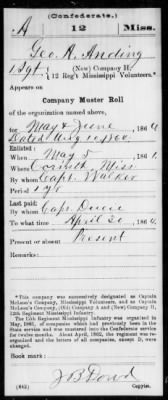 (Confederate.)
A 12 Miss.
Geo. R. Anding
1 Sgt, (New) Company H,
12 Reg't Mississippi Volunteers.*
Appears on
Company Muster Roll
of the organization named above,
for May & June, 1861.
When May 5, 1861.
Where Corinth Miss
By whom Capt. Walker
Period 1 yr
Last paid:
By whom Capt.
To what time April 30, 1861.
Present or absent Present
Remarks:
*This company was successively designated as Captain
McLean's Company, Mississippi Volunteers, and as Captain
McLean's Company, (New) Company H,
12th Regiment Mississippi Infantry.
The 12th Regiment Mississippi Infantry was organized in
May, 1861, of companies which had previously been in the
State service and was mustered into the Confederate service
for twelve months. About April, 1862, the regiment was re-
organized and the letters of all companies, except D, were
changed.
Book mark:
J B Dowd
(642) Copyist.